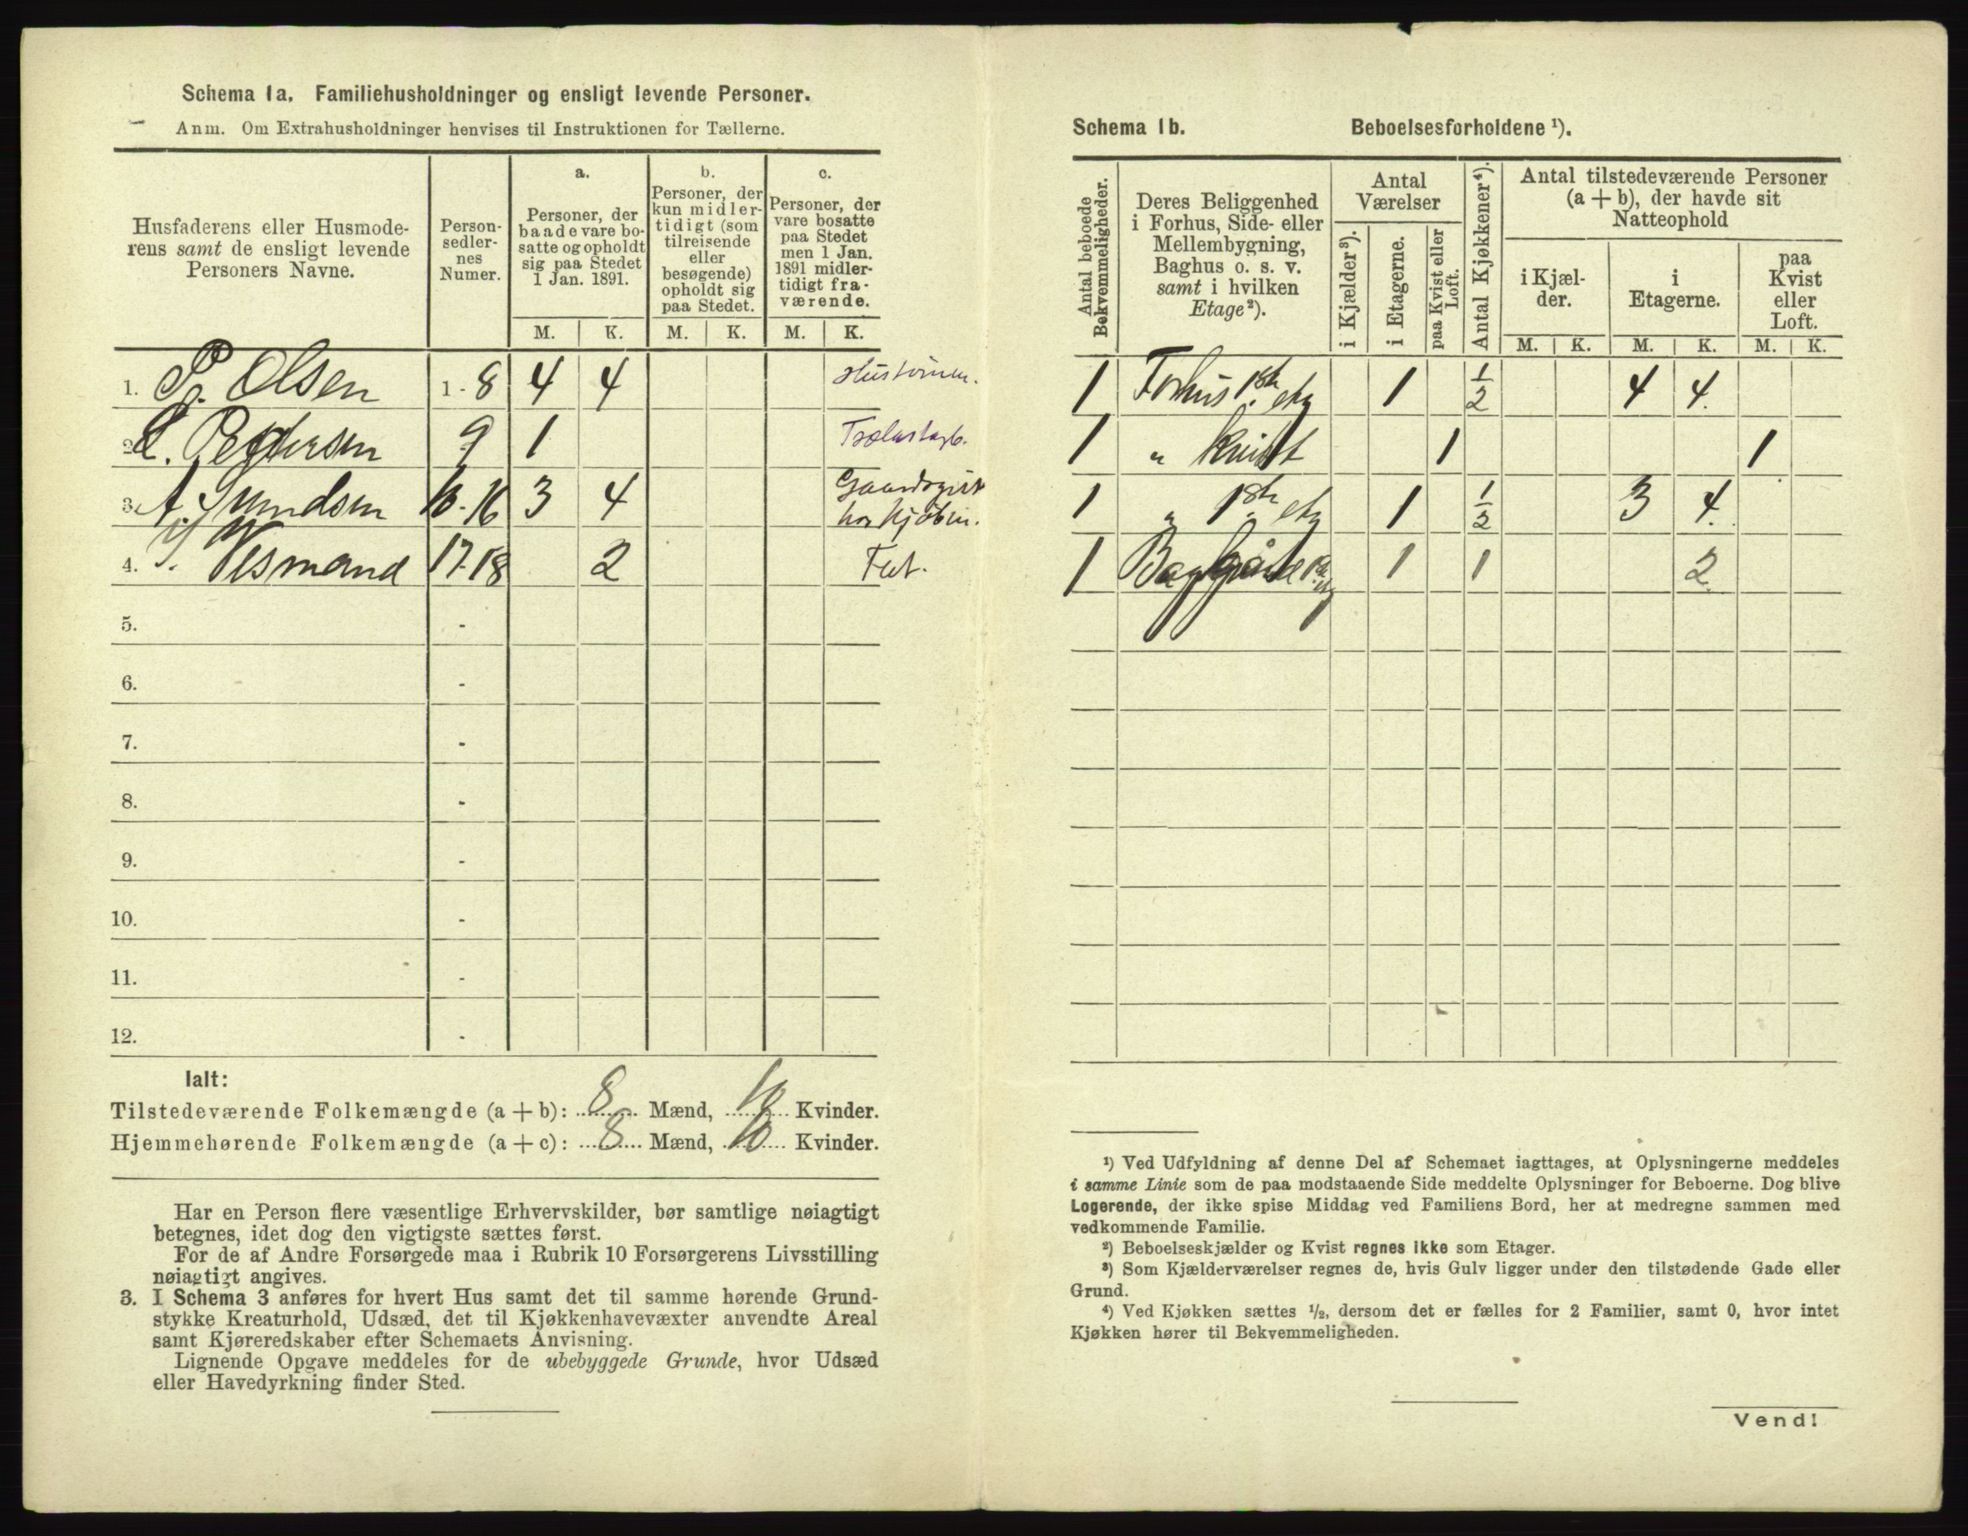 Schema 1a. Familiehusholdninger og ensligt levende Personer.
Anm. Om Extrahusholdninger henvises til Instruktionen for Tællerne.
Husfaderens eller Husmode-
rens samt de ensligt levende
Personers Navne.
Person-
sedler-
nes
Numer.
a.
Personer, der
baade vare bo-
satte og opholdt
sig paa Stedet
1 Jan. 1891.
b.
Personer, der
kun midler-
tidigt (som
tilreisende
eller
besøgende)
opholdt sig
paa Stedet.
c.
Personer, der
vare bosatte
paa Stedet
men 1 Jan.
1891 midler-
tidigt fra-
værende.
M. K. M. K. M. K.
1. P. Olsen 1-8 4 4
2. L. Pedersen 9 1
3. A. 10-16 3 4
4. 17-18 2 Fat.
5. -
6. -
7. -
8. -
9. -
10. -
11. -
12. -
Ialt:
Tilstedeværende Folkemængde (a+b): 8 Mænd, 10 Kvinder.
Hjemmehørende Folkemængde (a+c): 8 Mænd, 10 Kvinder.
Har en Person flere væsentlige Erhvervskilder, bør samtlige nøiagtigt
betegnes, idet dog den vigtigste sættes først.
For de af Andre Forsørgede maa i Rubrik 10 Forsørgerens Livsstilling
nøiagtigt angives.
3. I Schema 3 anføres for hvert Hus samt det til samme hørende Grund-
stykke Kreaturhold, Udsæd, det til Kjøkkenhavevæxter anvendte Areal
samt Kjøreredskaber efter Schemaets Anvisning.
Lignende Opgave meddeles for de ubebyggede Grunde, hvor Udsæd
eller Havedyrkning finder Sted.
Schema 1b. Beboelsesforholdene ¹).
Antal beboede
Bekvemmeligheder.
Deres Beliggenhed
i Forhus, Side- eller
Mellembygning,
Baghus o. s. v.
samt i hvilken
Etage²).
Antal
Værelser
i Kjælder³).
i Etagerne.
paa Kvist eller
Loft.
Antal Kjøkkener⁴).
Antal tilstedeværende Personer
(a + b), der havde sit
Natteophold
i Kjæl-
der.
i
Etagerne.
paa
Kvist
eller
Loft.
M. K. M. K. M. K.
1 Forhus 1ste etg 1 1/2 4 4.
1 „ kvist 1 1
1 „ 1ste etg 1 1/2 3 4.
1 1 1 2
¹) Ved Udfyldning af denne Del af Schemaet iagttages, at Oplysningerne meddeles
i samme Linie som de paa modstaaende Side meddelte Oplysninger for Beboerne. Dog blive
Logerende, der ikke spise Middag ved Familiens Bord, her at medregne sammen med
vedkommende Familie.
²) Beboelseskjælder og Kvist regnes ikke som Etager.
³) Som Kjælderværelser regnes de, hvis Gulv ligger under den tilstødende Gade eller
Grund.
⁴) Ved Kjøkken sættes ½, dersom det er fælles for 2 Familier, samt 0, hvor intet
Kjøkken hører til Bekvemmeligheden.
Vend!